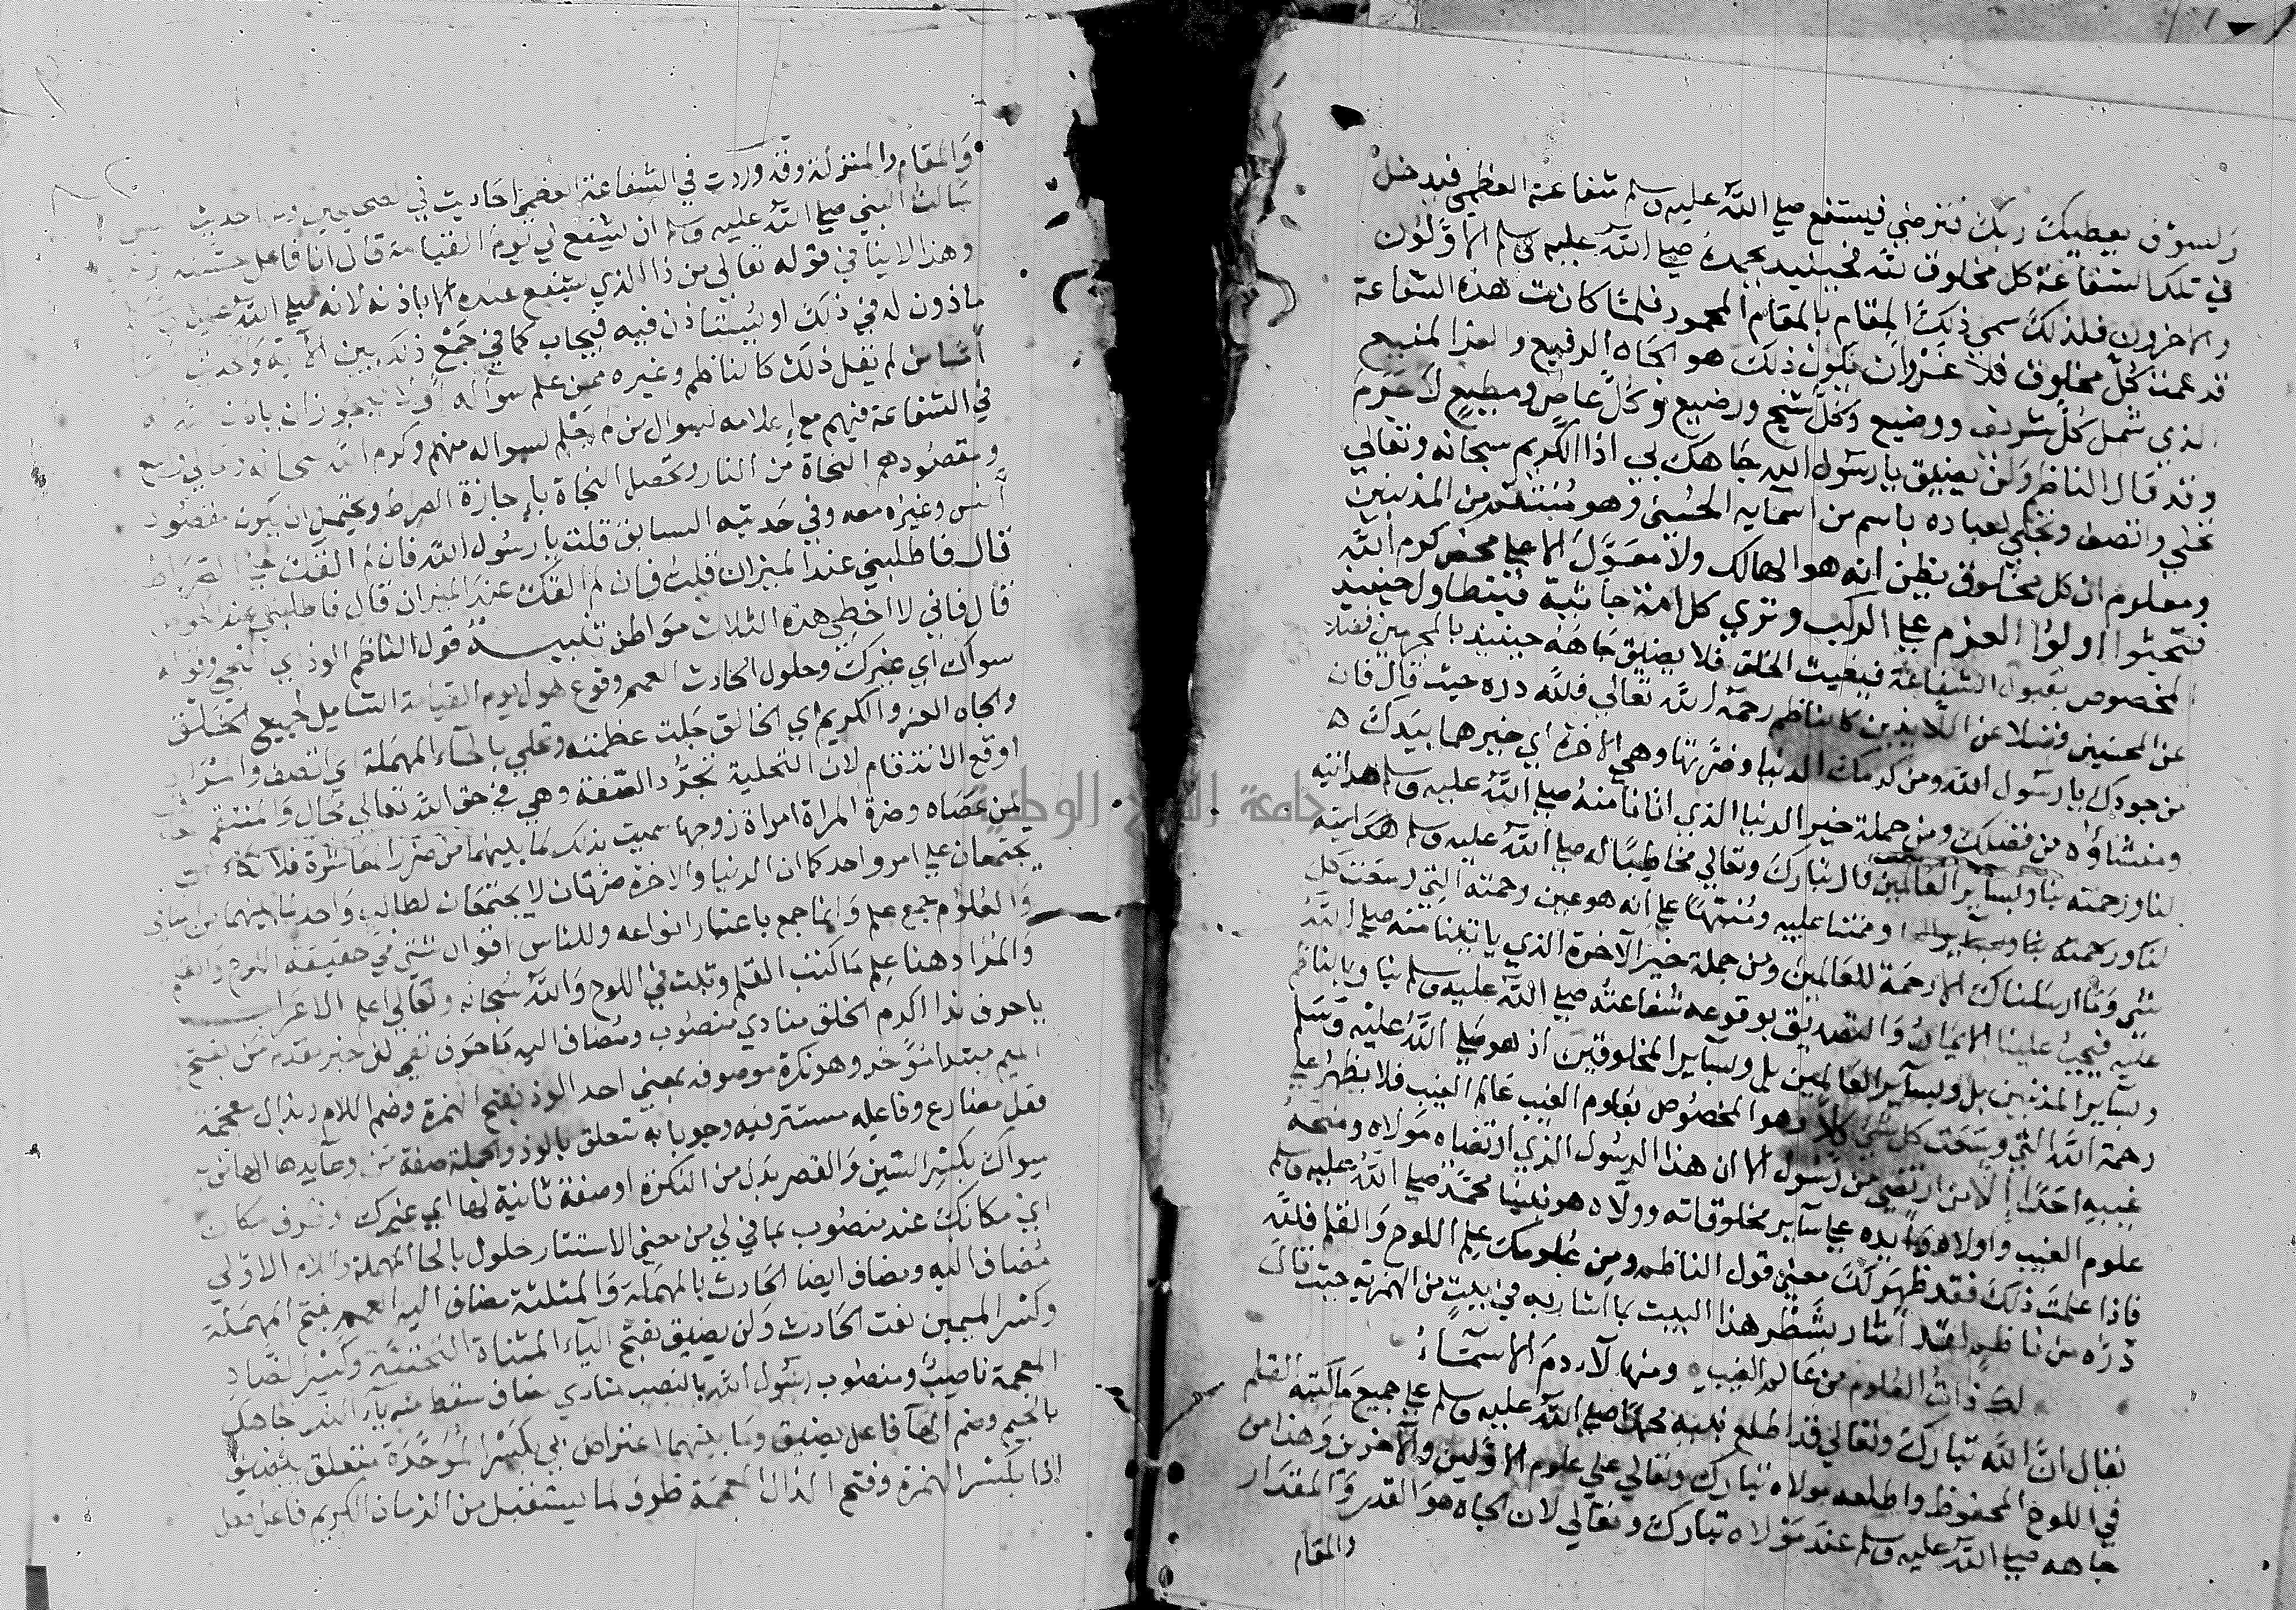 ولسوف يعطيك ربك فترضى فيستفع صلى الله عليه وسلم شفاعته العظمى فيدخل
في تلك الشفاعة كل مخلوق لله فحينيذ يحمده صلى الله عليه وسلم الاولون
والاخرون فلذلك سمي ذلك المقام بالمقام المحمود فلما كانت هذه الشفاعة
قد عمت كل مخلوق فلا غرو ان يكون ذلك هو الجاه الرفيع والعز المنيع
الذي شمل كل شريف ووضيع وكل شيخ ورضيع وكل عاص ومطيع لا جرم
وقد قال الناظم ولن يضيق يا رسول الله جاهك بي اذا الكريم سبحانه وتعالى
تحلي واتصف وتجلي لعباده باسم من اسمايه الحسنى وهو منتقم من المذنبين
ومعلوم ان كل مخلوق يظن انه هو الهالك ولا معول الا على محض كرم الله
فتجثوا اولوا العزم على الركب وترى كل امة جاثية فيتطاول حينيذ
المخصوص بقبول الشفاعة فيغيث الخلق فلا يضيق جاهه حينيذ بالمجرمين فضلا
عن المحسنين فضلا عن اللايذين كالناظم رحمه الله تعالى فلله دره حيث قال فان
من جودك يا رسول الله ومن كرمك الدنيا وضرتها وهي الاخرة اي خيرهما بيدك
ومنشاؤه من فضلك ومن جملة خير الدنيا الذي اتانا منه صلى الله عليه وسلم هدايته
لنا ورحمته بنا ولساير العالمين قال تبارك وتعالى مخاطبا له صلى الله عليه وسلم
لنا ورحمته بنا وممتنا عليه ومنبها على انه هو عين رحمته التي وسعت كل
شي وما ارسلناك الا رحمة للعالمين ومن جملة خير الآخرة الذي ياتينا منه صلى الله
عليه فيجب علينا الايمان والتصديق بوقوعه شفاعته صلى الله عليه وسلم بنا وبالناظم
وبساير المذنبين بل وبساير العالمين بل وبساير المخلوقين اذ هو صلى الله عليه وسلم
رحمة الله التي وسعت كل شي وهو المخصوص بعلوم الغيب عالم الغيب فلا يظهر على
غيبه احدا الا من ارتضى من رسول الا ان هذا الرسول الذي ارتضاه مولاه ومنحه
علوم الغيب واولاه على ساير مخلوقاته وولاه هو نبينا محمد صلى الله عليه وسلم
فاذا علمت ذلك فقد ظهر لك معنى قول الناظم ومن علومك علم اللوح والقلم فلله
دره من ناظم لقد اشار بشطر هذا البيت بما اشار به في بيت من الهمزية حيث قال
لك ذات العلوم من عالم الغيب ومنها لآدم الاسماء
فقال ان الله تبارك وتعالى قد اطلع نبيه محمدا صلى الله عليه وسلم على جميع ما كتبه القلم
في اللوح المحفوظ واطلعه مولاه تبارك وتعالى على علوم الاولين والآخرين وهذا من
جاهه صلى الله عليه وسلم عند مولاه تبارك وتعالى لان الجاه هو القدر والمقدار
والمقام
والمقام والمنزلة وقد وردت في الشفاعة العظمى احاديث في الصحيحين ومنه حديث
سالت النبي صلى الله عليه وسلم ان يشفع لي يوم القيامة قال انا فاعل
وهذا لا ينافي قوله تعالى من ذا الذي يشفع عنده الا باذنه لانه صلى الله عليه
ماذون له في ذلك او يستاذن فيه فيجاب كما في جمع ذلك بين الآية وحديث
اما من لم يقل ذلك كالناظم وغيره ممن علم سواله فيجوز ان ياذن
في الشفاعة فيهم مع اعلامه لسوال من لم يعلم لسواله منهم وكرم الله سبحانه وتعالى
ومقصودهم النجاة من النار وتحصل النجاة باجازة الصراط ويحتمل ان يكون مقصود
انس وغيره معه وفي حديثه السابق قلت يا رسول الله فان لم القك على الصراط
قال فاطلبني عند الميزان قلت فان لم القك عند الميزان قال فاطلبني عند
قال فاني لا اخطي هذه الثلاث مواطن تنبيه قول الناظم الوذ اي التجي وقوله
سواك اي غيرك وحلول الحادث العمم وقوع هول يوم القيامة الشامل لجميع الخلق
والجاه العز والكريم اي الخالق جلت عظمته وتحلي بالحاء المهملة اي اتصف
اوقع الانتقام لان التحلية تجدد الصفة وهي في حق الله تعالى محال والمنتقم
ممن عصاه وضرة المراة امراة زوجها سميت بذلك لما بينهما من ضرر المعاشرة فلا تكاد
يجتمعان على امر واحد كما ان الدنيا والاخرة ضرتان لا يجتمعان لطالب واحد
والعلوم جمع علم وانما جمع باعتبار انواعه وللناس اقوال شتى في حقيقة اللوح والقلم
والمراد هنا علم ما كتب القلم وثبت في اللوح والله سبحانه وتعالى اعلم الاعراب
يا حرف ندا اكرم الخلق منادي منصوب ومضاف اليه ما حرف نفي لي خبر مقدم من بفتح
الميم مبتدا موخر وهو نكرة موصوفه بمعنى احد الوذ بفتح الهمزة وضم اللام وبذال معجمة
فعل مضارع وفاعله مستتر فيه وجوبا به متعلق بالوذ والجملة صفة من وعايدها الها من به
سواك بكسر السين والقصر بدل من النكرة او صفة ثانية لها اي غيرك او ظرف مكان
اي مكانك عند منصوب بما في لي من معنى الاستقرار حلول بالحا المهملة واللام الاولى
مضاف اليه ومضاف ايضا الحادث بالمهملة والمثلثة مضاف اليه العمم بفتح المهملة
وكسر الميمين نعت الحادث ولن يضيق بفتح الياء المثناة التحتية وكسر الضاد
المعجمة ناصب ومنصوب رسول الله بالنصب منادي مضاف سقط منه يا الندا جاهك
بالجيم وضم الها فاعل يضيق وما بينهما اعتراض بي بكسر الموحدة متعلق بيضيق
اذا بكسر الهمزة وفتح الذال المعجمة ظرف لما يستقبل من الزمان الكريم فاعل فعل
جامعة الوطنية